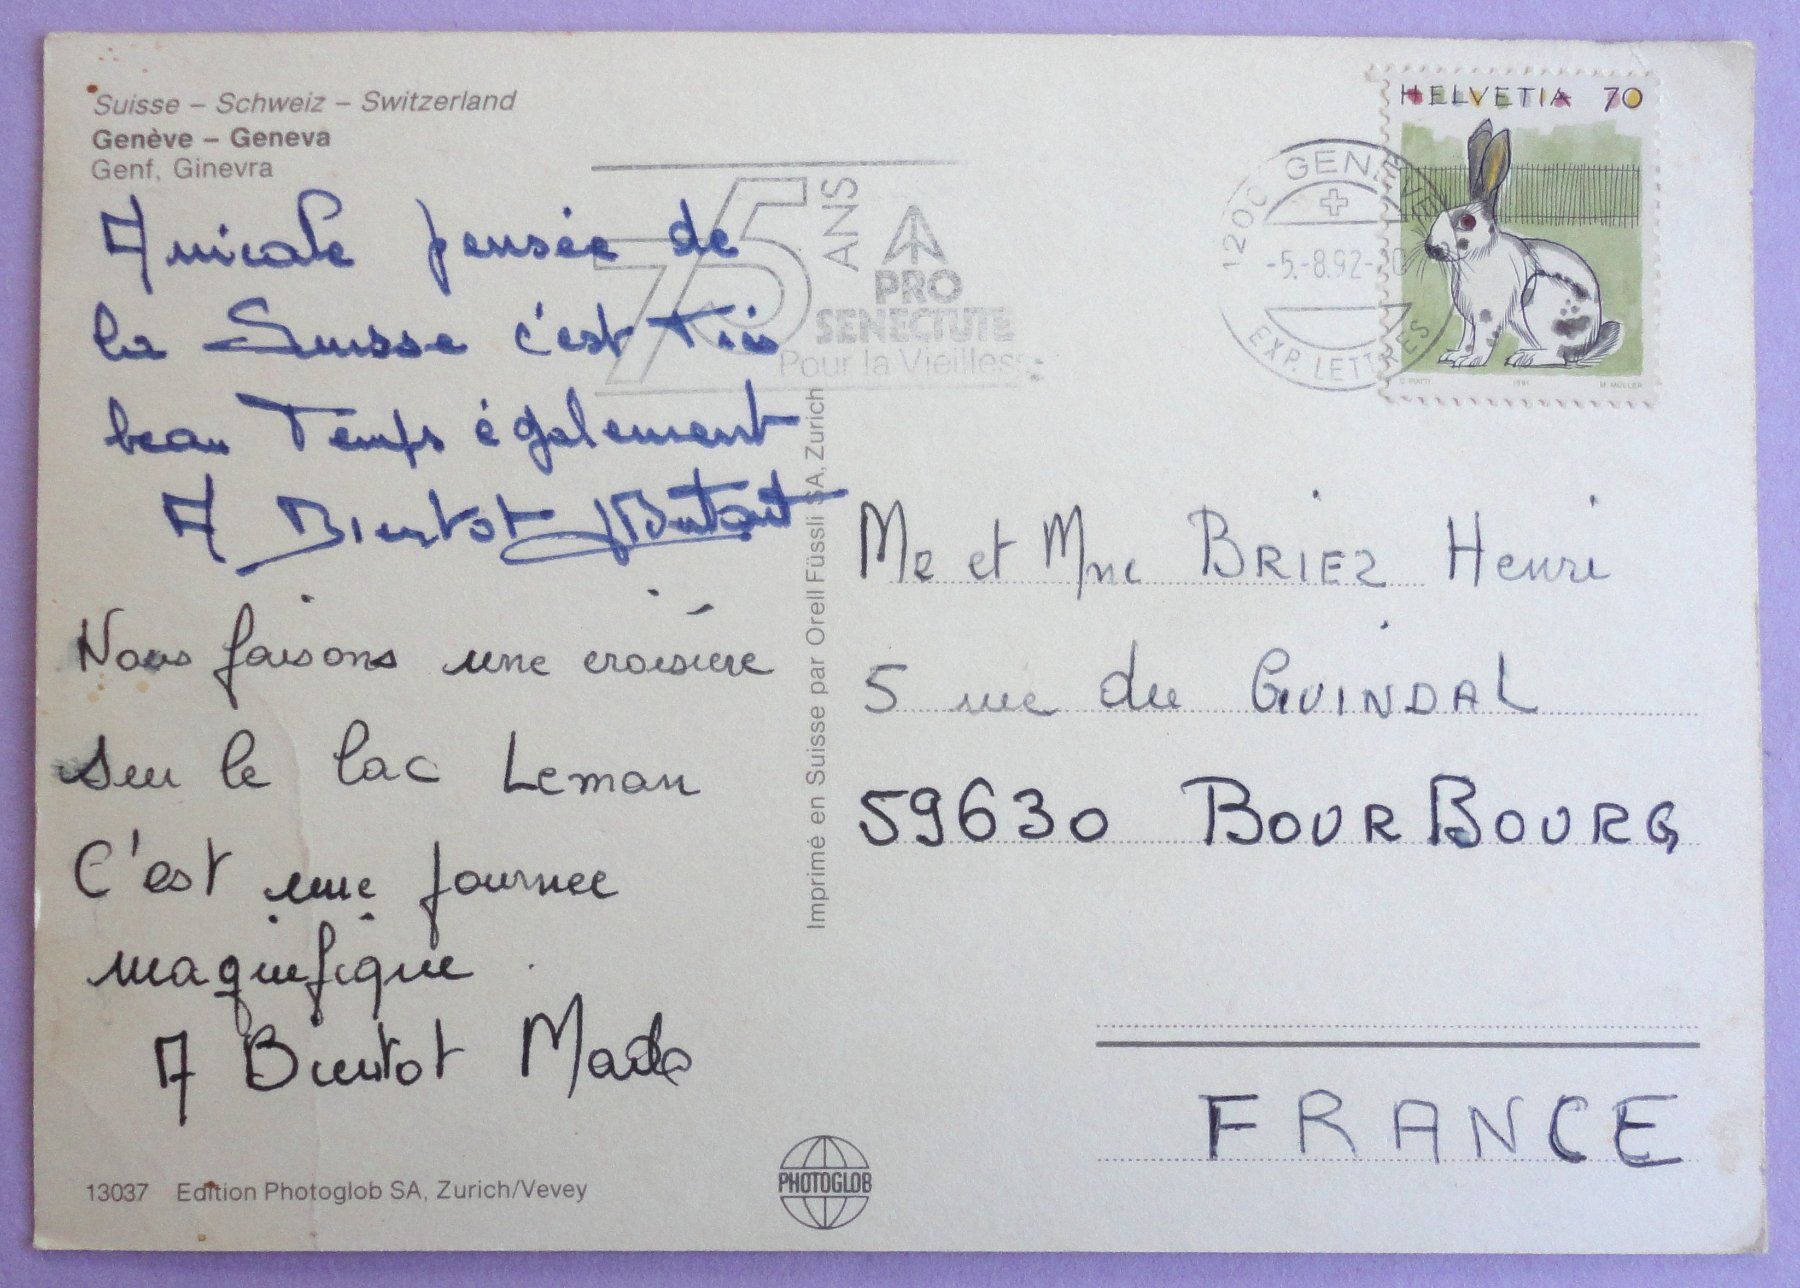 Suisse – Schweiz – Switzerland
Genève – Geneva
Genf, Ginevra
Amicale pensée de
la Suisse c'est Très
beau Temps également
A Bientot
Nous faisons une croisière
sur le lac Leman
C'est une journee
magnifique
A Bientot Mado
13037 Edition Photoglob SA, Zurich/Vevey
Imprimé en Suisse par Orell Füssli SA, Zurich
PHOTOGLOB
75 ANS
PRO
SENECTUTE
Pour la Vieilless
1200 GENÈVE
-5.-8.92-
EXP. LETTRES
HELVETIA 70
C. PIATTI 1991 M. MÜLLER
Mr et Mme BRIEZ Henri
5 rue du GUINDAL
59630 BOURBOURG
FRANCE